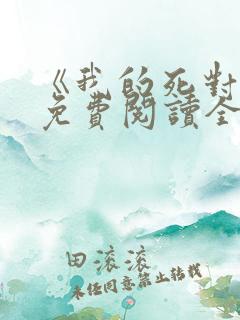 《我的死對
免費閱讀全
田滚滚
未经同意禁止转载